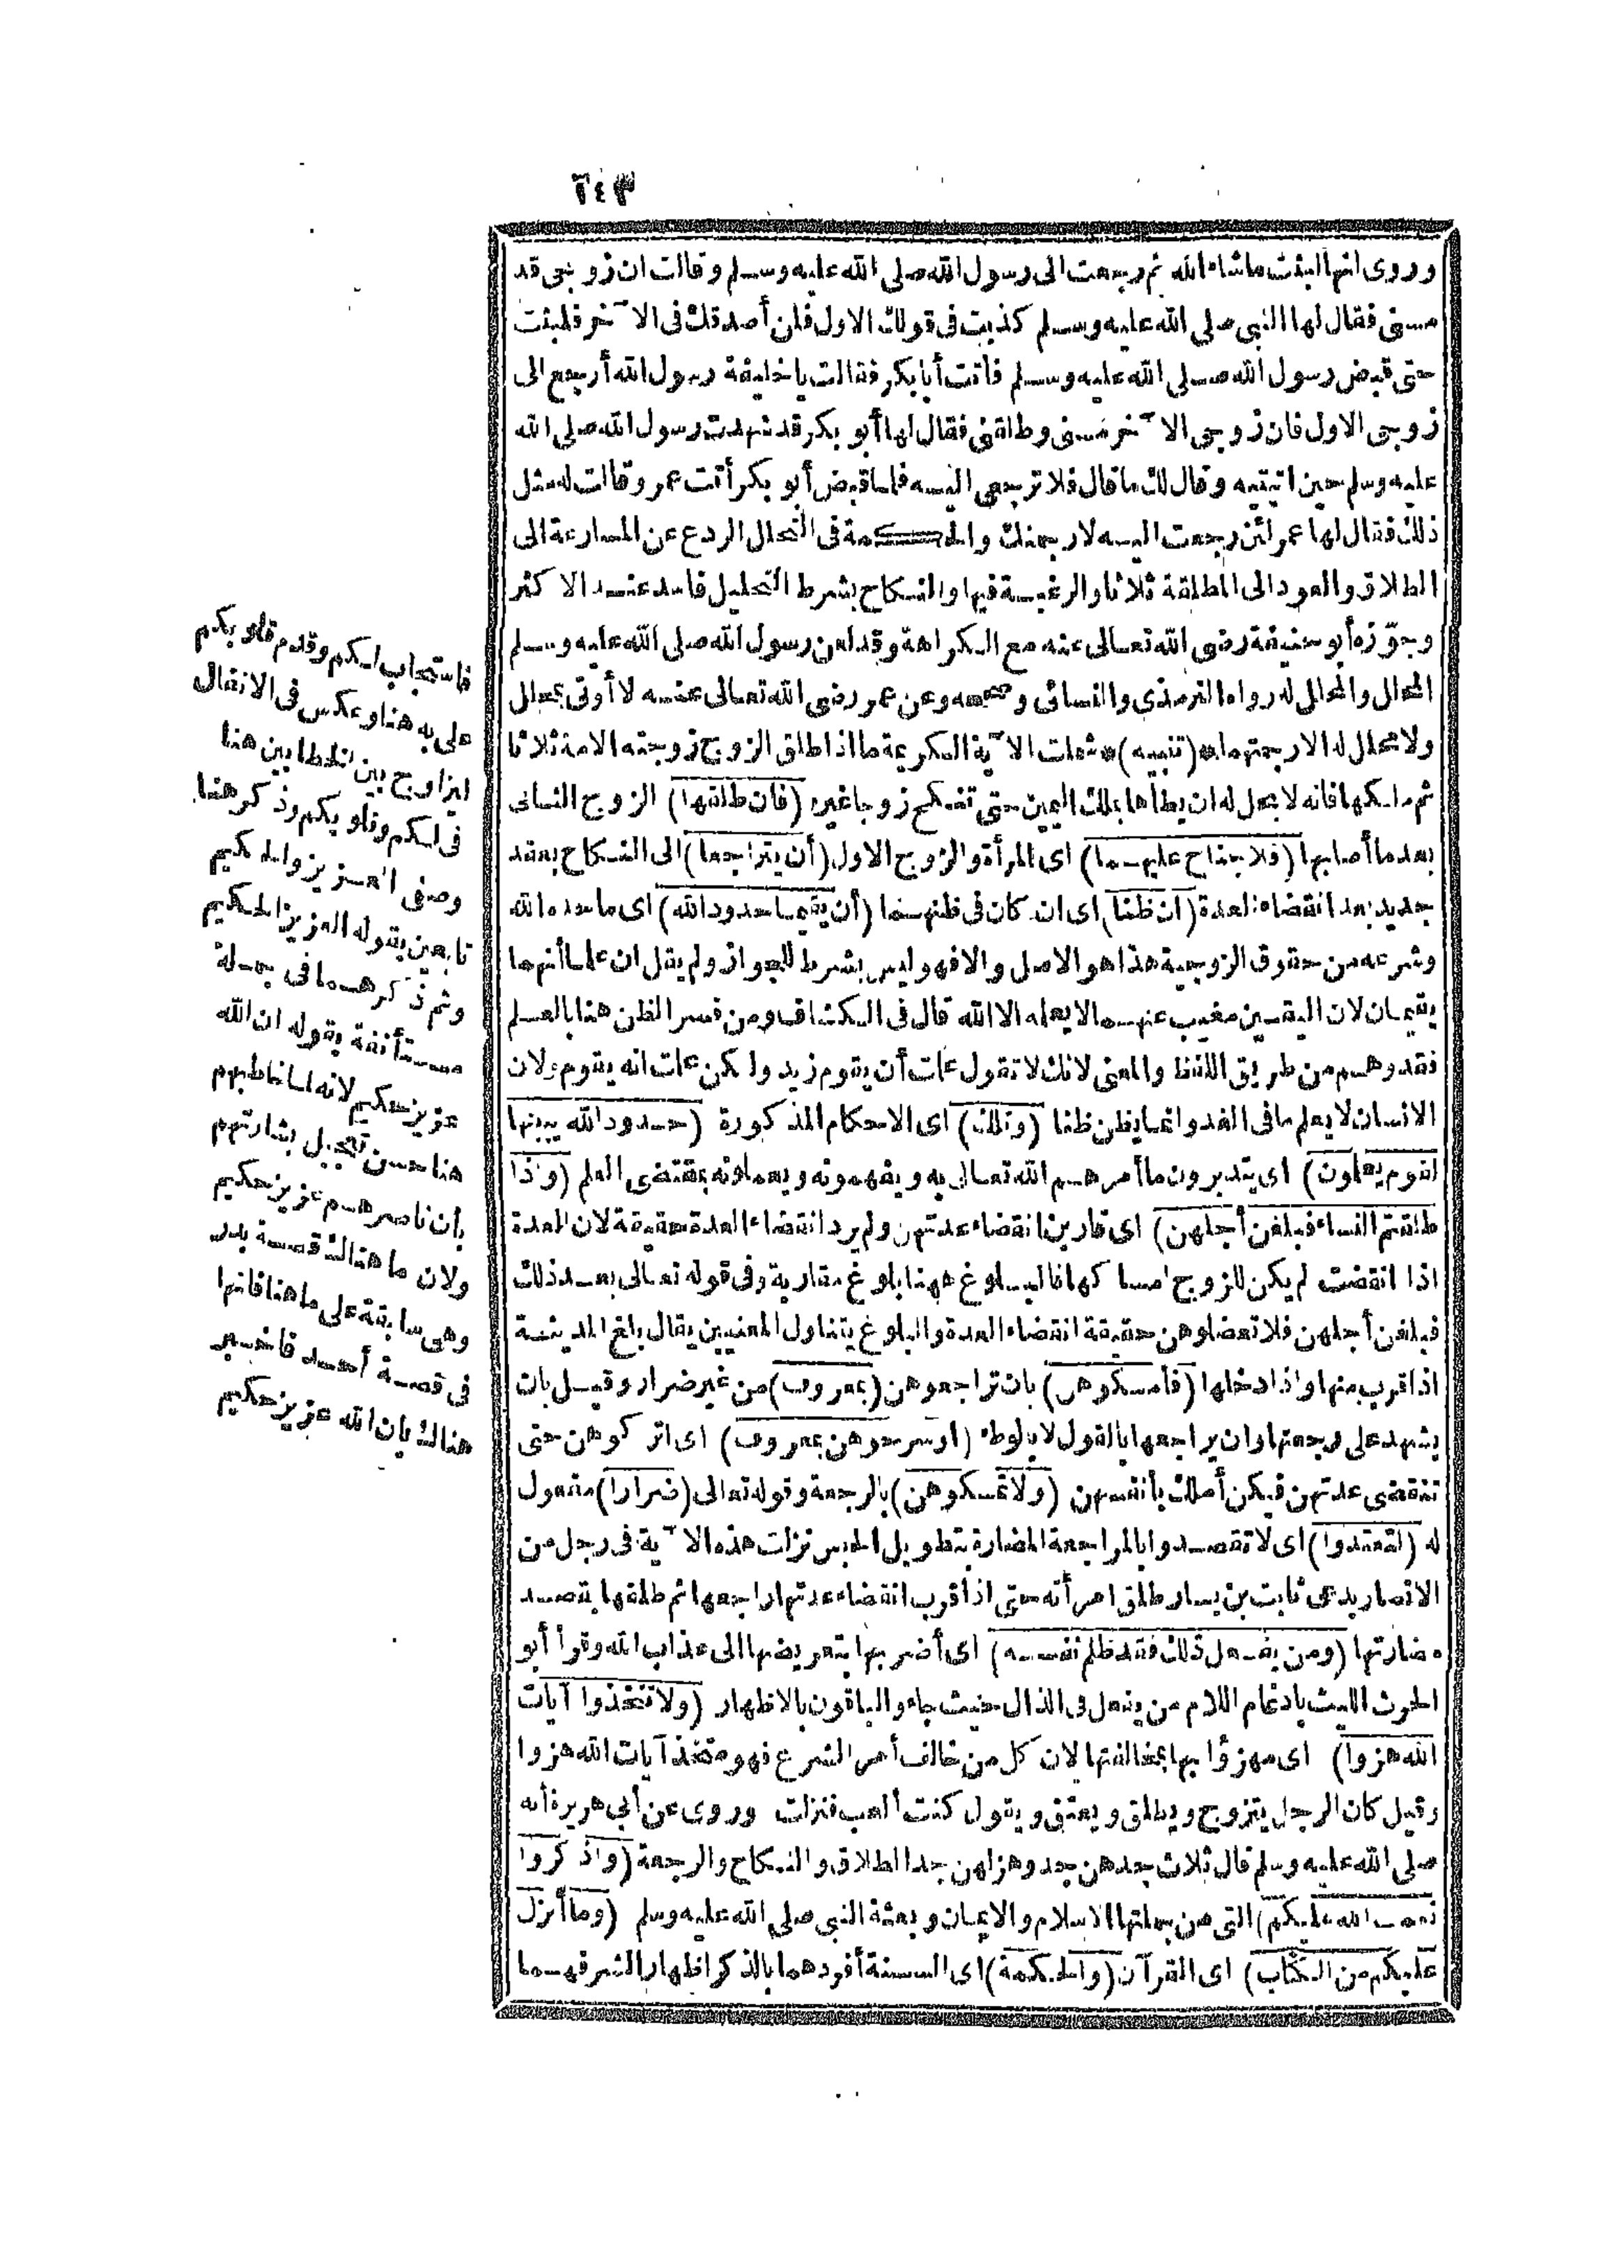 ١٤٣
وروى انها لبثت ما شاء الله ثم رجعت الى رسول الله صلى الله عليه وسلم وقالت ان زوجى قد
مسنى فقال لها النبى صلى الله عليه وسلم كذبت فى قولك الاول فلن أصدقك فى الآخر فلبثت
حتى قبض رسول الله صلى الله عليه وسلم فأتت أبا بكر فقالت يا خليفة رسول الله أرجع الى
زوجى الاول فان زوجى الآخر مسنى وطلقنى فقال لها أبو بكر قد شهدت رسول الله صلى الله
عليه وسلم حين اتيتيه وقال لك ما قال فلا ترجعى اليه فلما قبض أبو بكر أتت عمر وقالت له مثل
ذلك فقال لها عمر لئن رجعت اليه لارجمنك والحكمة فى التحلل الردع عن المسارعة الى
الطلاق والعود الى المطلقة ثلاثا والرغبة فيها والنكاح بشرط التحليل فاسد عند الاكثر
وجوّزه أبو حنيفة رضى الله تعالى عنه مع الكراهة وقد لعن رسول الله صلى الله عليه وسلم
المحلل والمحلل له رواه الترمذى والنسائى وصححه وعن عمر رضى الله تعالى عنه لا أوتى بمحلل
ولا محلل له الا رجمتهما * (تنبيه) * شملت الآية الكريمة ما اذا طلق الزوج زوجته الامة ثلاثا
ثم ملكها فانه لا يحل له ان يطأها بملك اليمين حتى تنكح زوجا غيره (فان طلقها) الزوج الثانى
بعد ما أصابها (فلا جناح عليهما) اى المرأة والزوج الاول (أن يتراجعا) الى النكاح بعقد
جديد بعد انقضاء العدة (ان ظنا) اى ان كان فى ظنهما (أن يقيما حدود الله) اى ما حده الله
وشرعه من حقوق الزوجية هذا هو الاصل والا فهو ليس بشرط للجواز ولم يقل ان علما أنهما
يقيمان لان اليقين مغيب عنهما لا يعلمه الا الله قال فى الكشاف ومن فسر الظن هنا بالعلم
فقد وهم من طريق اللفظ والمعنى لانك لا تقول علمت أن يقوم زيد ولكن علمت انه يقوم ولان
الانسان لا يعلم ما فى الغد وانما يظن ظنا (وتلك) اى الاحكام المذكورة (حدود الله يبينها
لقوم يعلمون) اى يتدبرون ما أمرهم الله تعالى به ويفهمونه ويعملونه بمقتضى العلم (واذا
طلقتم النساء فبلغن أجلهن) اى قاربن انقضاء عدتهن ولم يرد انقضاء العدة حقيقة لان العدة
اذا انقضت لم يكن للزوج امساكها فالبلوغ ههنا بلوغ مقاربة وفى قوله تعالى بعد ذلك
فبلغن أجلهن فلا تعضلوهن حقيقة انقضاء العدة والبلوغ يتناول المعنيين يقال بلغ المدينة
اذا قرب منها واذا دخلها (فأمسكوهن) بان تراجعوهن (بمعروف) من غير ضرار وقيل بان
يشهد على رجعتها وان يراجعها بالقول لا بالوطء (او سرحوهن بمعروف) اى اتركوهن حتى
تنقضى عدتهن فيكن أملك بأنفسهن (ولا تمسكوهن) بالرجعة وقوله تعالى (ضرارا) مفعول
له (لتعتدوا) اى لا تقصدوا بالمراجعة المضارة بتطويل الحبس نزلت هذه الآية فى رجل من
الانصار يدعى ثابت بن يسار طلق امرأته حتى اذا قرب انقضاء عدتها راجعها ثم طلقها بقصد
مضارتها (ومن يفعل ذلك فقد ظلم نفسه) اى أضر بها بتعريضها الى عذاب الله وقرأ أبو
الحرث الليث بادغام اللام من يفعل فى الذال حيث جاء والباقون بالاظهار (ولا تتخذوا آيات
الله هزوا) اى مهزؤا بها بمخالفتها لان كل من خالف أمر الشرع فهو متخذ آيات الله هزوا
وقيل كان الرجل يتزوج ويطلق ويعتق ويقول كنت ألعب فنزلت وروى عن أبى هريرة أنه
صلى الله عليه وسلم قال ثلاث جدهن جد وهزلهن جد الطلاق والنكاح والرجعة (واذكروا
نعمت الله عليكم) التى من جملتها الاسلام والايمان وبعثة النبى صلى الله عليه وسلم (وما أنزل
عليكم من الكتاب) اى القرآن (والحكمة) اى السنة أفردهما بالذكر اظهارا لشرفهما
فاستجاب لكم وقدم قلوبكم
على به هنا وعكس فى الانفال
ليزاوج بين الخطابين هنا
فى لكم وقلوبكم وذكر هنا
وصفى العزيز والحكيم
تابعين بقوله العزيز الحكيم
وثم ذكرهما فى جملة
مستأنفة بقوله ان الله
عزيز حكيم لانه لما خاطبهم
هنا حسن تعجيل بشارتهم
بأن ناصرهم عزيز حكيم
ولان ما هنالك قصة بدر
وهى سابقة على ما هنا فانها
فى قصة أحد فأخبر
هناك بان الله عزيز حكيم